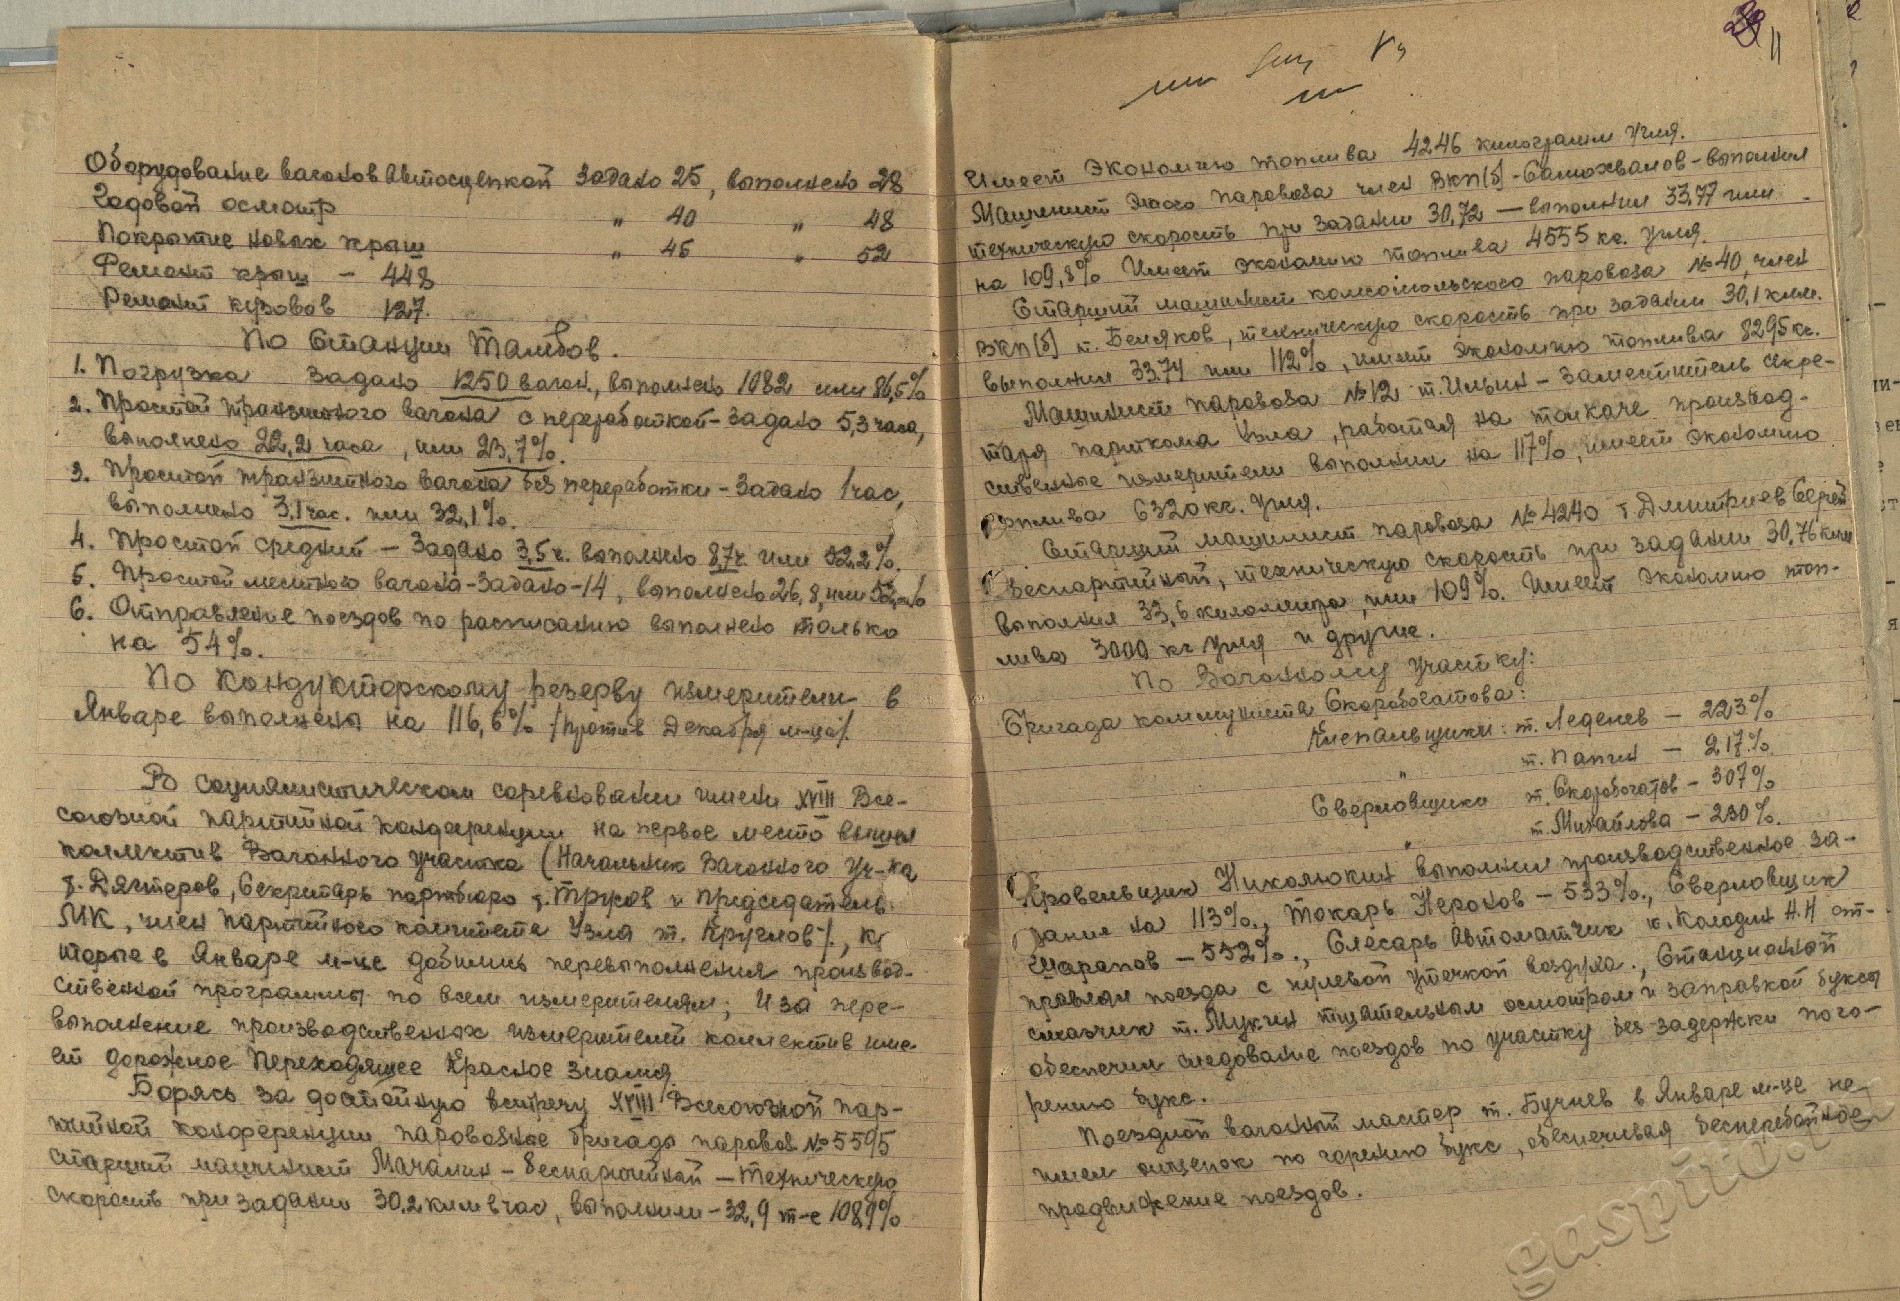 Оборудование вагонов Автосцепкой задано 25, выполнено 28
Годовой осмотр " 40 " 48
Покрытие новых крыш " 45 " 52
Ремонт крыш - 448
Ремонт кузовов 127.
По Станции Тамбов.
1. Погрузка задано 1250 вагон., выполнено 1082 или 86,5%
2. Простой транзитного вагона с переработкой - задано 5,3 часа,
выполнено 22,2 часа, или 23,7%.
3. Простой транзитного вагона без переработки - задано 1 час,
выполнено 3,1 час. или 32,1%.
4. Простой средний - задано 3,5 ч. выполнено 8,7 ч. или 32,2%.
5. Простой местного вагона - задано - 14, выполнено 26,8, или
6. Отправление поездов по расписанию выполнено только
на 54%.
По Кондукторскому резерву измерители в
Январе выполнены на 116,6% /против Декабря м-ца/.
В социалистическом соревновании имени XVIII Все-
союзной партийной конференции на первое место вышел
коллектив Вагонного участка (Начальник Вагонного Уч-ка
т. Дягтеров, Секретарь партбюро т. Трусов и председатель
МК, член партийного комитета Узла т. Круглов/, ко
торые в Январе м-це добились перевыполнения производ-
ственной программы по всем измерителям; И за пере-
выполнение производственных измерителей коллектив име-
ет дорожное Переходящее Красное знамя.
Борясь за достойную встречу XVIII Всесоюзной пар-
тийной конференции паровозные бригады паровоз № 5595
Старший машинист Мачалин - беспартийный - Техническую
скорость при задании 30,2 клм в час, выполнили - 32,9 т-е 108,9%
11
Имеет экономию топлива 4246 килограмм угля.
Машинист этого паровоза член ВКП(б) - Самохвалов - выполнил
техническую скорость при задании 30,72 — выполнил 33,77 или
на 109,8% Имеет экономию топлива 4555 кг. угля.
Старший машинист комсомольского паровоза № 40, член
ВКП(б) т. Беляков, техническую скорость при задании 30,1 клм.
выполнил 33,74 или 112%, имеет экономию топлива 8295 кг.
Машинист паровоза № 12 т. Ильин - заместитель секре-
таря парткома узла, работая на толкаче производ-
ственные измерители выполнил на 117%, имеет экономию
топлива 6320 кг. угля.
Старший машинист паровоза № 4240 т Дмитриев Сергей
беспартийный, техническую скорость при задании 30,76 клм
выполнил 33,6 километра, или 109%. Имеет экономию топ-
лива 3000 кг угля и другие.
По Вагонному участку:
Бригада коммуниста Скоробогатова:
Клепальщики: т. Леденев - 223%
" т. Папин - 217%
Сверловщики т. Скоробогатов - 307%
" т. Михайлова - 230%.
Кровельщик Николюкин выполнил производственное за-
дание на 113%., Токарь Неронов - 533%., Сверловщик
Шарапов - 552%., Слесарь Автоматчик т. Колодин Н.Н от-
правлял поезда с нулевой утечкой воздуха., Станционный
смазчик т. Мукин тщательным осмотром и заправкой буксы
обеспечил следование поездов по участку без задержки по го-
рению букс.
Поездной вагонный мастер т. Бучнев в Январе м-це не
имел отцепок по горению букс, обеспечивая бесперебойное
продвижение поездов.
gaspito.ru